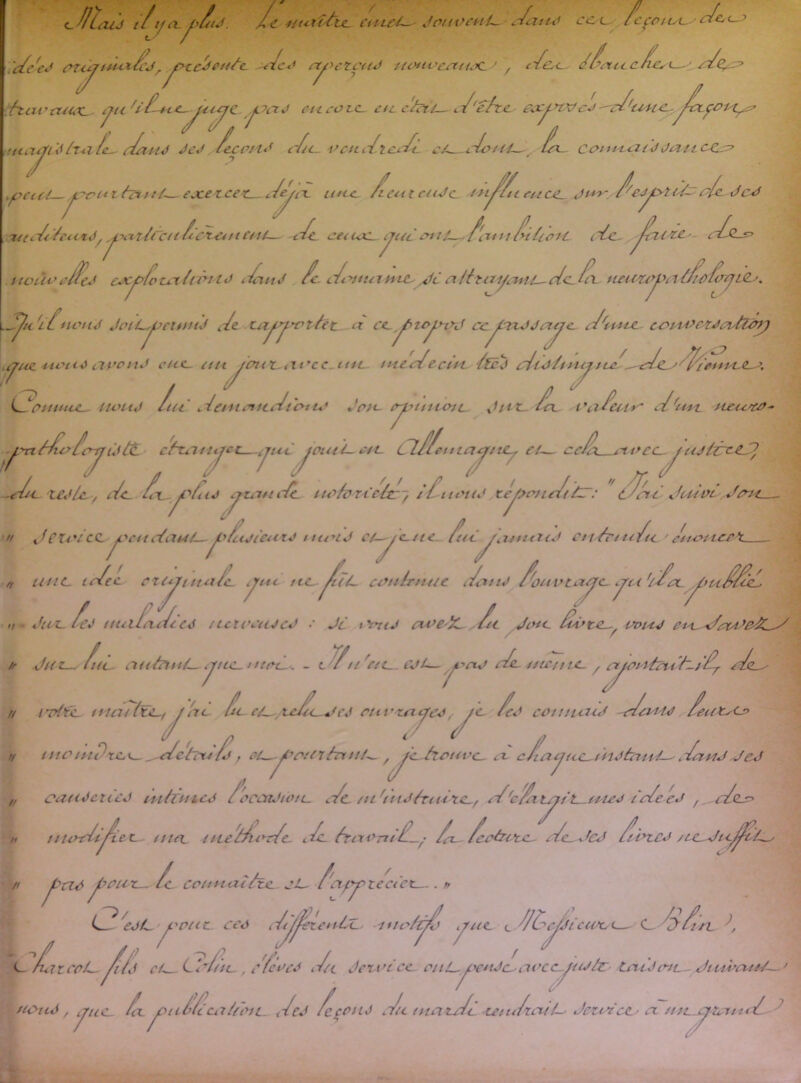 Mais il y a plus. Le maître émet souvent dans ces leçons des
idées originales, présente des aperçus nouveaux, des ébauches de
travaux qu'il ne juge pas encore en état d'être exprimés d'une façon
magistrale dans ses leçons du vendredi et dont la connaissance
peut pourtant exercer déjà une heureuse influence sur l'esprit de ses
auditeurs, particulièrement de ceux qui ont l'ambition de faire de
nouvelles explorations dans le domaine si attrayant de la neuropathologie.
Qu'il nous soit permis de rapporter à ce propos ce passage d'une conversation
que nous avons eue un jour avec un médecin très distingué de Vienne.
Comme nous lui demandions son opinion sur la valeur d'un neuro-
pathologiste étranger qui jouit en Allemagne, et cela avec justice
du reste, de la plus grande notoriété, il nous répondit : " J'ai suivi son
" service pendant plusieurs mois et je ne l'ai jamais entendu énoncer
" une idée originale qui ne fût contenue dans l'ouvrage qu'il a publié
" sur les maladies nerveuses : Si vous avez lu son livre, vous en savez
" sur lui autant que moi. - Il n'en est pas de même, ajoutait-il, de
" votre maître, j'ai lu et relu ses ouvrages, je les connais dans leurs
" moindres détails, et pourtant, je trouve à chaque instant dans ses
" causeries intimes l'occasion de m'instruire, d'élargir mes idées, de
" modifier ma méthode de travail ; la lecture de ses livres ne suffit
" pas pour le connaître et l'apprécier. "
C'est pour ces différents motifs que Messieurs Blin,
Charcot fils et Colin, élèves du service ont pensé avec juste raison suivant
nous, que la publication des leçons du mardi rendrait service à un grand